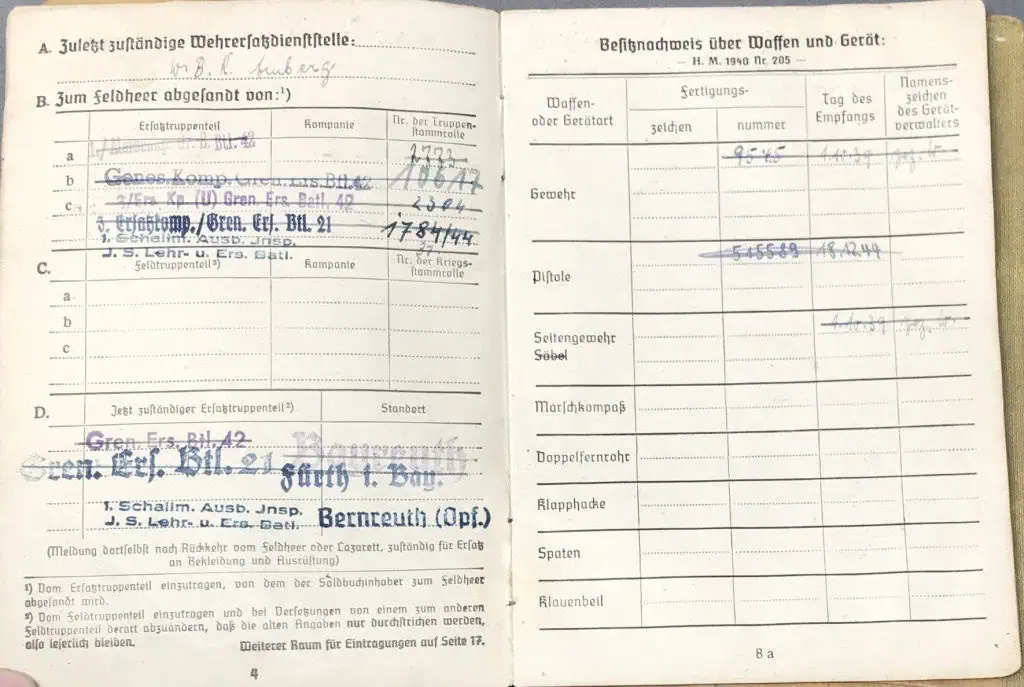 A. Zuletzt zuständige Wehrersatzdienststelle:
W. B. K. Amberg
B. Zum Feldheer abgesandt von:¹)
Ersatztruppenteil Kompanie Nr. der Truppenstammrolle
a Btl. 42 2773
b Genes. Komp. Gren. Ers. Btl. 42 10617
c 2/Ers. Kp (U) Gren. Ers. Batl. 42 2304
3. Ersatzkomp./Gren. Ers. Btl. 21 1784/44
1. Schalim. Ausb. Jnsp.
J. S. Lehr- u. Ers. Batl. 37
C. Feldtruppenteil²) Kompanie Nr. der Kriegsstammrolle
a
b
c
D. Jetzt zuständiger Ersatztruppenteil²) Standort
Gren. Ers. Btl. 42 Bayreuth
Gren. Ers. Btl. 21 Fürth i. Bay.
1. Schalim. Ausb. Jnsp.
J. S. Lehr- u. Ers. Batl. Bernreuth (Opf.)
(Meldung dortselbst nach Rückkehr vom Feldheer oder Lazarett, zuständig für Ersatz
an Bekleidung und Ausrüstung)
¹) Vom Ersatztruppenteil einzutragen, von dem der Soldbuchinhaber zum Feldheer
abgesandt wird.
²) Vom Feldtruppenteil einzutragen und bei Versetzungen von einem zum anderen
Feldtruppenteil derart abzuändern, daß die alten Angaben nur durchstrichen werden,
also leserlich bleiben.
Weiterer Raum für Eintragungen auf Seite 17.
4
Besitznachweis über Waffen und Gerät:
— H. M. 1940 Nr. 205 —
Waffen-
oder Gerätart
Fertigungs-
zeichen nummer
Tag des
Empfangs
Namens-
zeichen
des Gerät-
verwalters
Gewehr 9545 1.10.39 gez.
Pistole 515589 18.12.44
Seitengewehr 1.10.39 gez.
Säbel
Marschkompaß
Doppelfernrohr
Klapphacke
Spaten
Klauenbeil
8 a